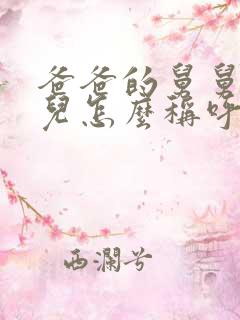 爸爸的舅舅
兒怎麼稱呼
西瀾兮